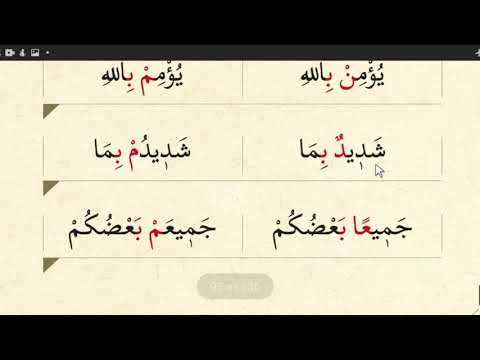 يُؤْمِنْ بِاللهِ يُؤْمِمْ بِاللهِ
شَدٖيدٌ بِمَا شَدٖيدُمْ بِمَا
جَمٖيعًا بَعْضُكُمْ جَمٖيعَمْ بَعْضُكُمْ